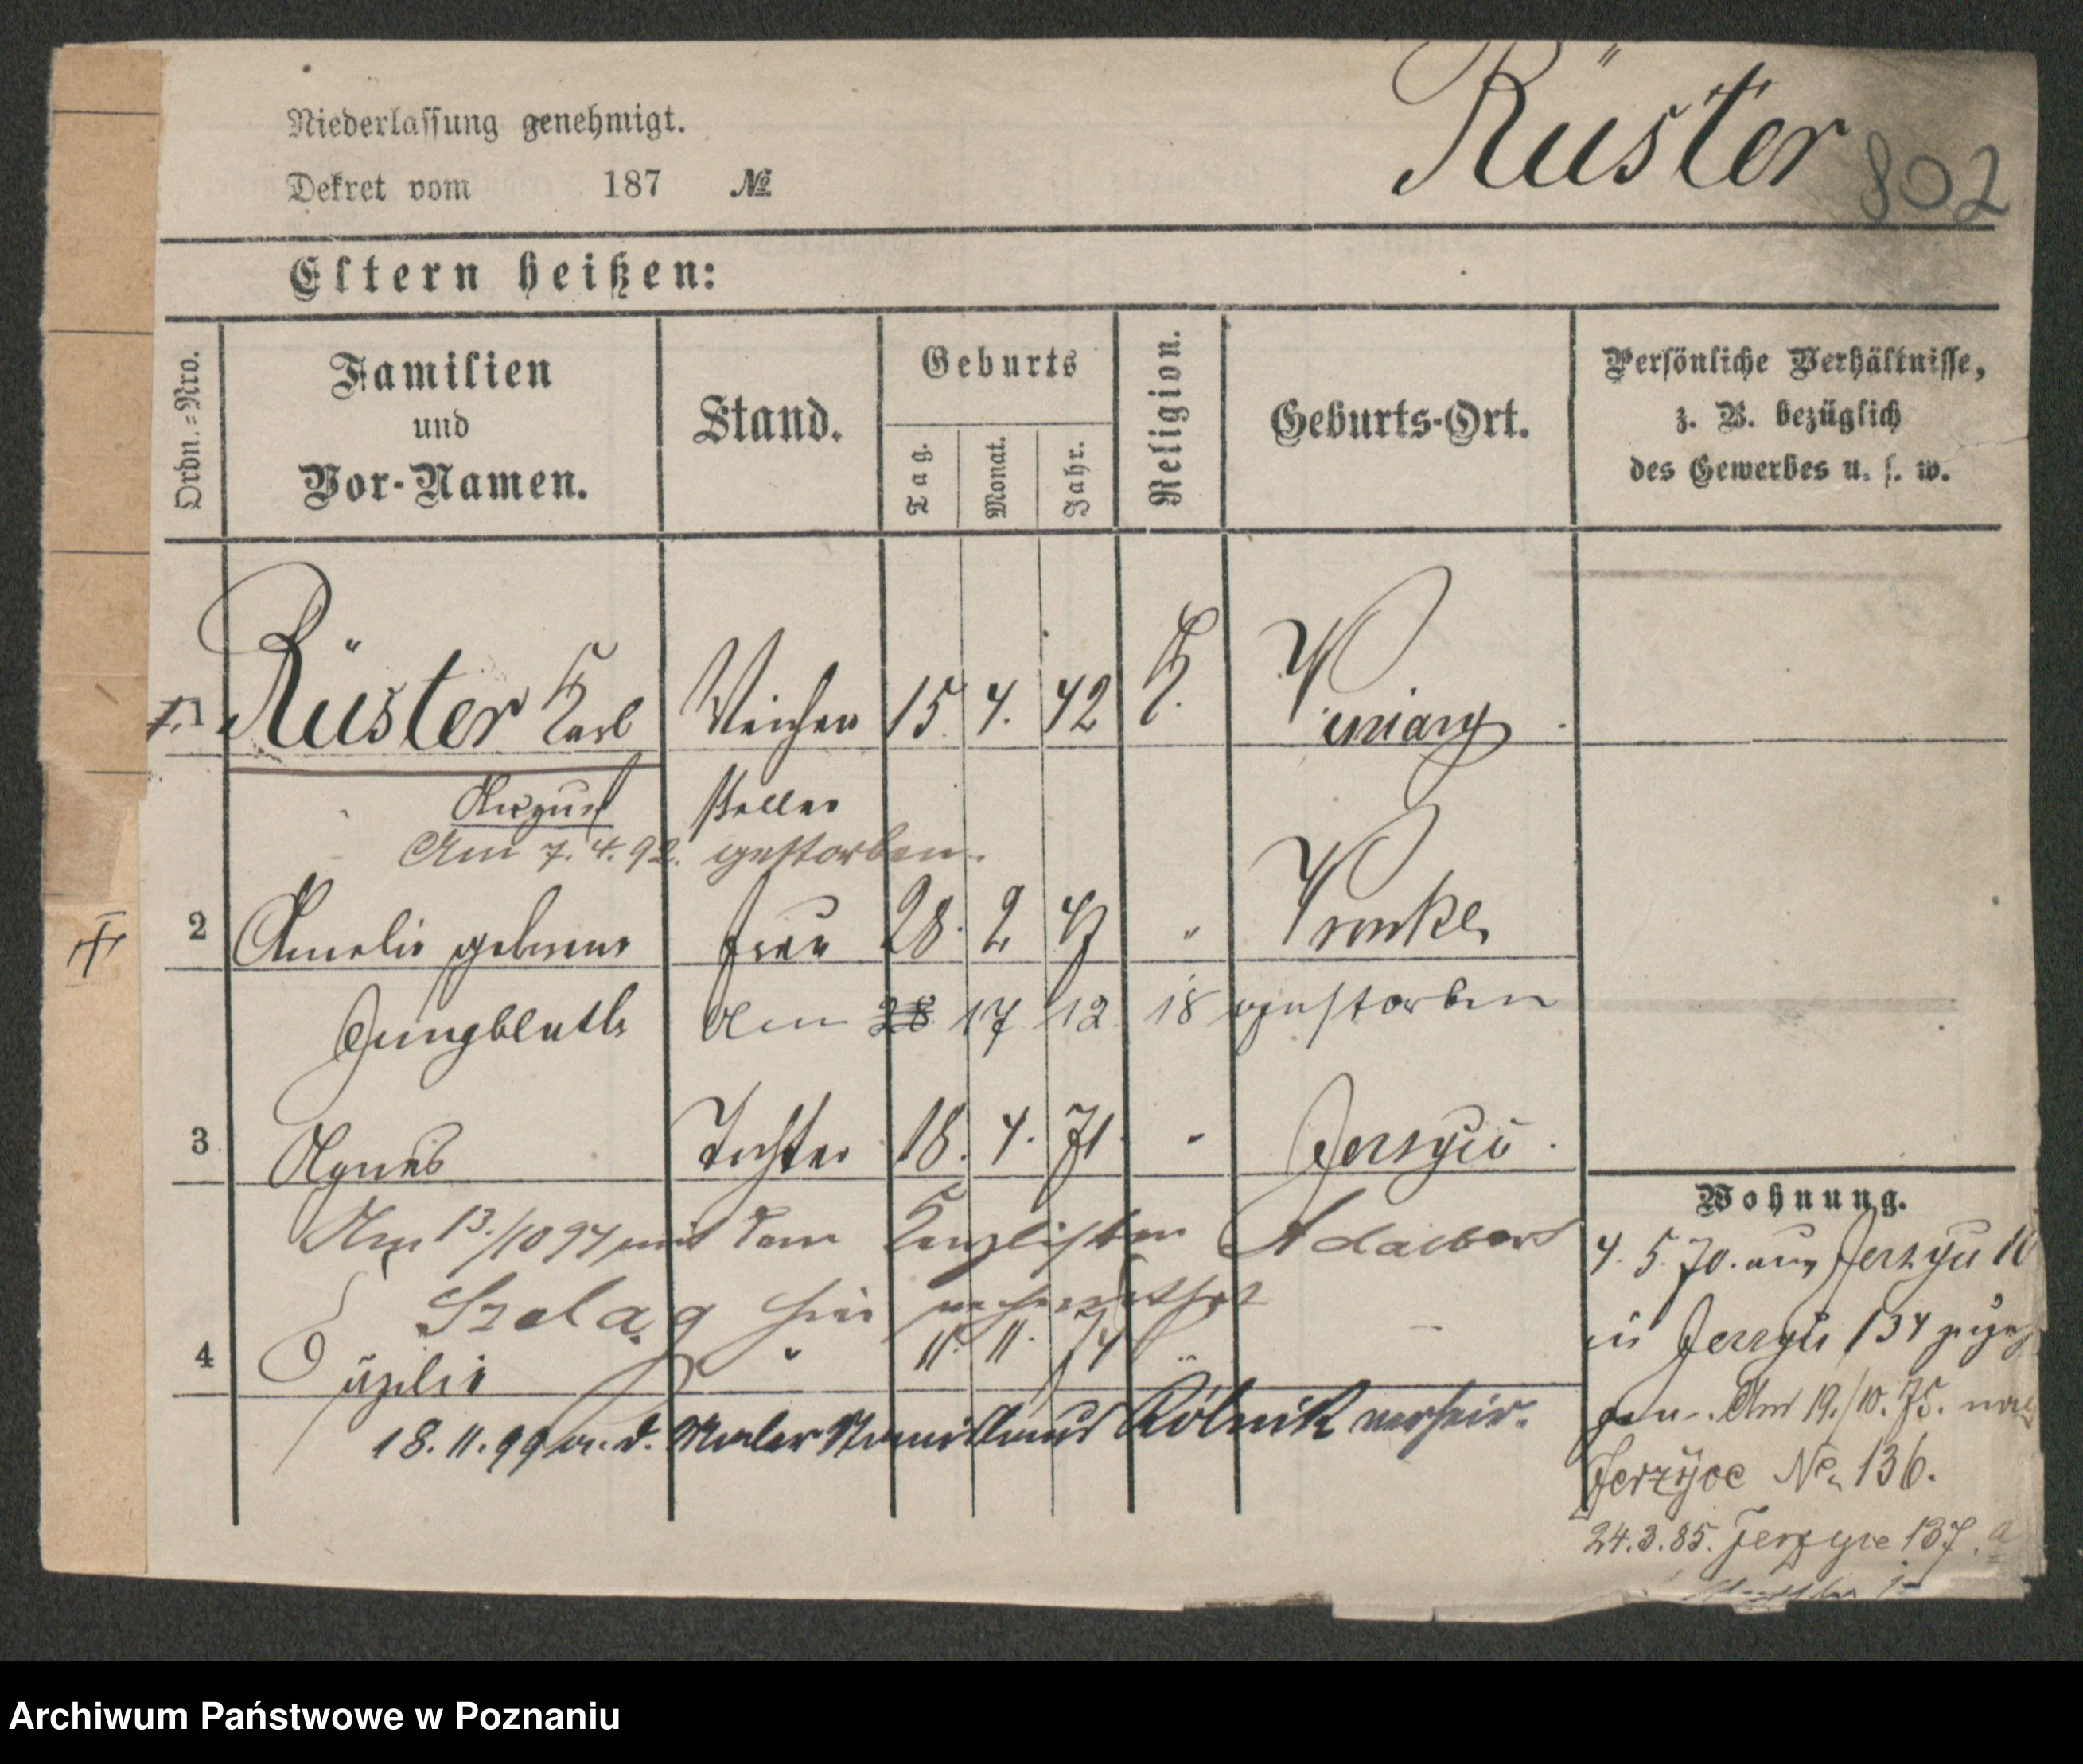 Rüster
802
Niederlassung genehmigt.
Dekret vom 187 №
Eltern heißen:
Ordn.=Nro.
Familien
und
Vor-Namen.
Stand.
Geburts
Tag.
Monat.
Jahr.
Religion.
Geburts-Ort.
Persönliche Verhältnisse,
z. B. bezüglich
des Gewerbes u. s. w.
1 Rüster Karl Weichen 15. 4. 42 K. Winiary.
August steller
Am 7. 4. 92. gestorben.
2 Amelie geborene Frau 28. 2 47 " Wronke
Jungbluth Am 28 17 12 18 gestorben
3 Agnes Tochter 18. 4. 71. " Jerzyce.
Am 13./10 97 mit dem Kanzlisten Adalbert
Szeląg hier verheirathet
4 Cäzilie " 11. 11. 74
18. 11. 99 m. d. Maler Stanislaus Rólnik verheir.
Wohnung.
4. 5. 70. aus Jerzyce
in Jerzyce 134 zuge
gen. Am 19./10. 75. nach
Jerzyce No. 136.
24. 3. 85. Jerzyce 137. a
Archiwum Państwowe w Poznaniu